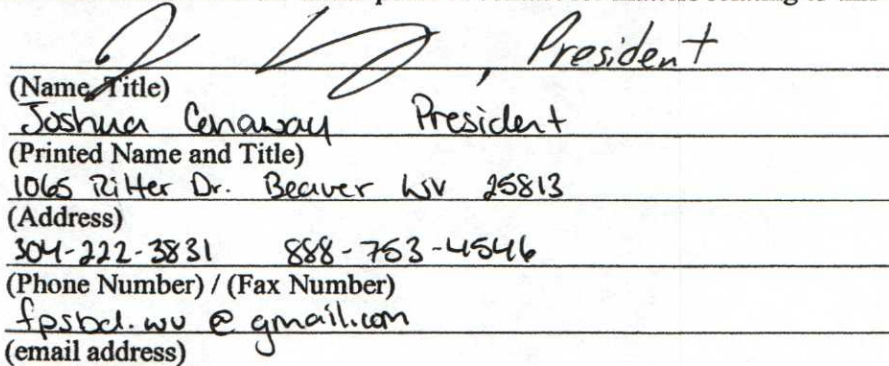 , President
(Name, Title)
Joshua President
(Printed Name and Title)
1065 Ritter Dr. Beaver WV 25813
(Address)
304-222-3831 888-753-4546
(Phone Number) / (Fax Number)
fpsbd.wv @ gmail.com
(email address)